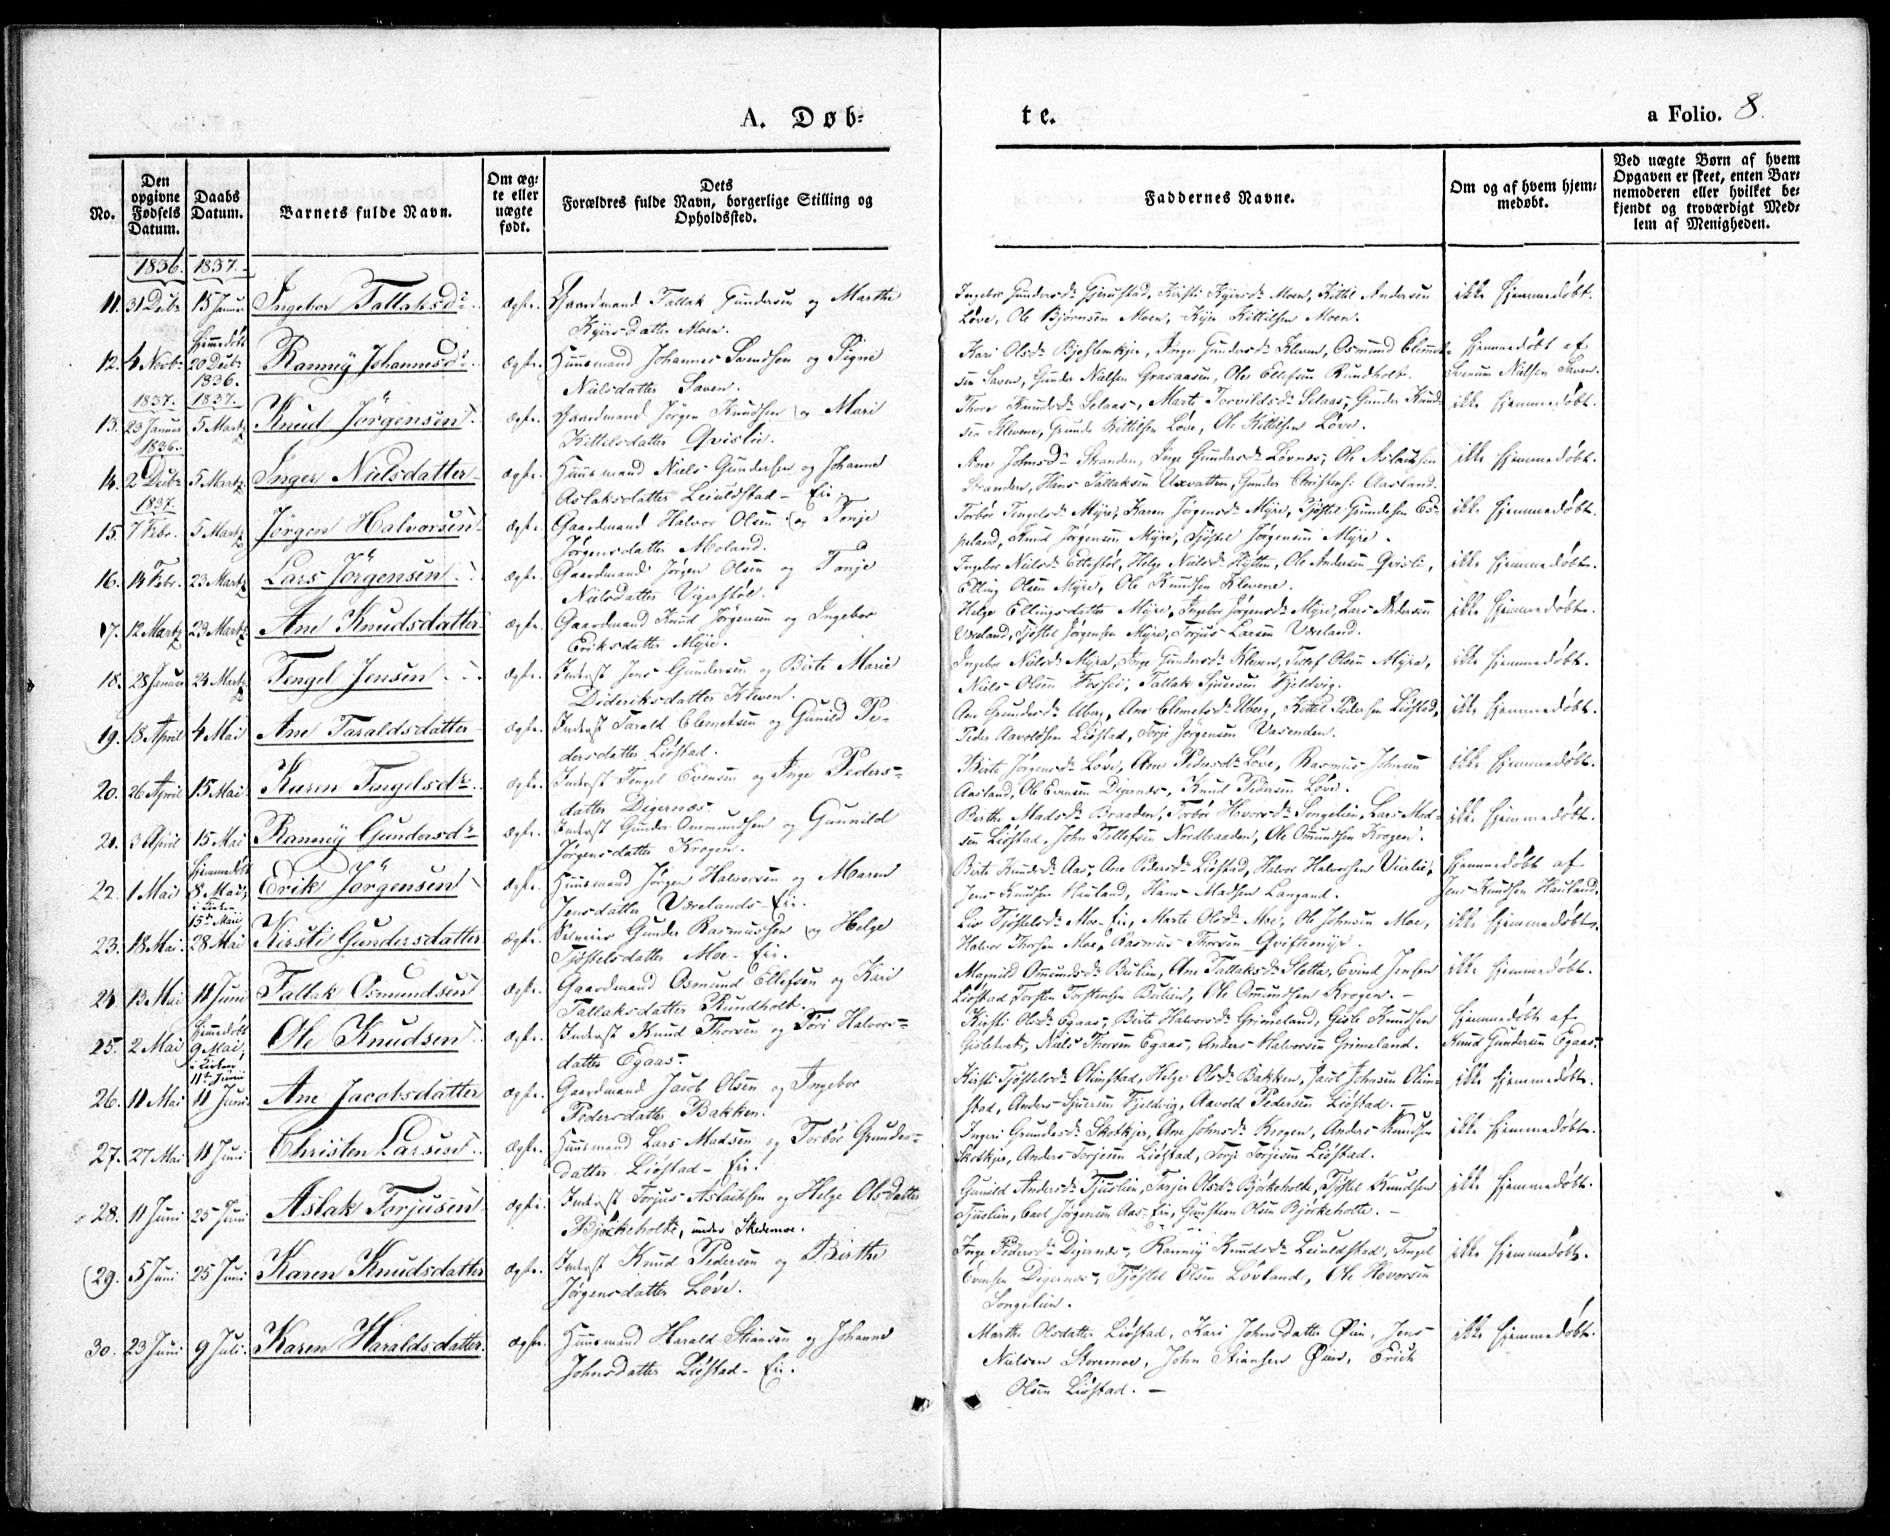 A. Døb-
te.
a Folio. 8.
No.
Den opgivne Fødsels Datum.
Daabs Datum.
Barnets fulde Navn.
Om ægte eller uægte født.
Dets Forældres fulde Navn, borgerlige Stilling og Opholdssted.
Faddernes Navne.
Om og af hvem hjemmedøbt.
Ved uægte Børn af hvem
Opgaven er skeet, enten Bar-
nemoderen eller hvilket be-
kjendt og troværdigt Med-
lem af Menigheden.
1836. 1837.
11. 31 Decbr 15 Januar Ingebor Tallaksdr ægte. Gaardmand Tallak Gundersen og Marthe
Kjirsdatter Moen.
Ingebor Gundersdr Gjerustad, Kirsti Kjirsdr Moen, Kittil Andersen
Løve, Ole Bjørnsen Moen, Kjir Kittilsen Moen.
ikke hjemmedøbt.
12. 4 Novbr Hjemmedøbt 20 Decbr 1836. Ranney Johannesdr ægte. Huusmand Johannes Svendsen og Signe
Nielsdatter Saven.
Kari Olsdr, Inge Gundersdr Kleven, Osmund Clemet-
sen Saven, Gunder Nielsen Graaaasen, Ole Ellefsen Rundholt.
hjemmedøbt af
Svenum Nielsen Saven.
1837. 1837.
13. 23 Januar 5 Martz Knud Jørgensen ægte. Gaardmand Jørgen Knudsen og Mari
Kittelsdatter Qvislie.
Thore Knudsdr Selaas, Marte Torvildsdr Selaas, Gunder Knud-
sen Klevene, Gunde Kittilsen Løve, Ole Kittilsen Løve.
ikke hjemmedøbt.
1836.
14. 2 Decbr 5 Martz Inger Nielsdatter ægte. Huusmand Niels Gundersen og Johanne
Aslaksdatter Leiuldstad- Ei.
Ane Johnsdr Stranden, Inge Gundersdr Løvnes, Ole Aslachsen
Stranden, Hans Tallaksen Uxvatten, Gunder Christens: Aasland.
ikke hjemmedøbt.
1837.
15. 7 Febr. 5 Martz Jørgen Halvorsen ægte. Gaardmand Halvor Olsen og Tonje
Jørgensdatter Moland.
Torbør Tengelsdr Myre, Karen Jørgensdr Myre, Tjøstel Gundersen Es-
peland, Knud Jørgensen Myre, Tjøstel Jørgensen Myre.
ikke hjemmedøbt.
16. 14 Febr. 23 Martz Lars Jørgensen ægte. Gaardmand Jørgen Olsen og Tonje
Nielsdatter Vigerstøl.
Ingebor Nielsdr Ettestøl, Helge Nielsdr Hytten, Ole Andersen Qvisli,
Elling Olsen Myre, Ole Knudsen Klevene.
ikke hjemmedøbt.
17. 12 Martz 23 Martz Ane Knudsdatter ægte. Gaardmand Knud Jørgensen og Ingebor
Eriksdatter Myre.
Helge Ellingsdatter Myre, Ingebor Jørgensdr Myre, Lars Andersen
Væeland, Tjøstel Jørgensen Myre, Torjus Larsen Væeland.
ikke hjemmedøbt.
18. 28 Januar 24 Martz Tengel Jensen ægte. Inderst Jens Gundersen og Birte Marie
Dideriksdatter Kleven.
Ingebor Nielsdr Myra, Inge Gundersdr Kleven, Tellef Olsen Myra,
Niels Olsen Fossie, Tallak Sjuersen Fjeldvig.
ikke hjemmedøbt.
19. 18 April 4 Mai Ane Taraldsdatter ægte. Inderst Tarald Clemetsen og Gunild Pe-
dersdatter Liøstad.
Ane Grundesdr Uberg, Ane Clemetsdr Uberg, Kittel Pedersen Liøstad,
Peder Aavoldsen Liøstad, Torje Jørgensen Vasenden.
ikke hjemmedøbt.
20. 26 April 15 Mai Karen Tengelsdr ægte. Inderst Tengel Evensen og Inge Peders-
datter Digernæs.
Birte Jørgensdr Løve, Ane Pedersdr Løve, Rasmus Johnsen
Aasland, Ole Evensen Digernæs, Knud Pedersen Løve.
ikke hjemmedøbt.
21. 3 April 15 Mai Ranney Gundersdr ægte. Inderst Gunder Ommundsen og Gunnild
Jørgensdatter Krogen.
Berthe Madsdr Braaden, Torbør Hovorsdr Songelien, Lars Mad-
sen Liøstad, John Tellefsen Nordbraaden, Ole Omundsen Krogen.
ikke hjemmedøbt.
22. 1 Mai Hjemmedøbt 8 Mai, i Kirken 15de Mai Erik Jørgensen ægte. Huusmand Jørgen Halvorsen og Maren
Jensdatter Værelands-Ei.
Birte Knudsdr Aas, Ane Pedersdr Liøstad, Halvor Halvorsen Vierlie,
Jens Knudsen Hauland, Hans Madsen Langand.
hjemmedøbt af
Jens Knudsen Hauland.
23. 18 Mai 28 Mai Kirsti Gundersdatter ægte. Selveier Gunder Rasmussen og Helge
Tjøstelsdatter Moe-Ei.
Liv Tjøstelsdr Moe-Ei, Marte Olsdr Moe, Ole Johnsen Moe,
Halvor Thorsen Moe, Rasmus Thorsen Qviftemyr.
ikke hjemmedøbt.
24. 13 Mai 11 Juni Tallak Osmundsen ægte. Gaardmand Osmund Ellefsen og Kari
Tallaksdatter Rundholt.
Magnild Ommundsdr Bulien, Ane Tallaksdr Sletta, Evind Jensen
Liøstad, Torsten Torstensen Bulien, Ole Ommundsen Krogen.-
ikke hjemmedøbt.
25. 2 Mai Hjemmedøbt 9 Mai, i Kirken 11te Juni Ole Knudsen ægte. Inderst Knud Thorsen og Tori Halvors-
datter Egaas.
Kirsti Olsdr Egaas, Birte Halvorsdr Grimeland, Gisle Knudsen
Gisletvet, Niels Thorsen Egaas, Anders Halvorsen Grimeland.
hjemmedøbt af
Knud Gundersen Egaas.
26. 11 Mai 11 Juni Ane Jacobsdatter ægte. Gaardmand Jacob Olsen og Ingebor
Pedersdatter Bakken.
Kirsti Tjøstelsdr Olimstad, Helge Olsdr Bakken, Jacob Johnsen Olim-
stad, Anders Sjuersen Fjeldvig, Aavold Pedersen Liøstad.-
ikke hjemmedøbt.
27. 27 Mai 11 Juni Christen Larsen ægte. Huusmand Lars Madsen og Torbør Grundes-
datter Liøstad- Ei.
Ingeri Grundesdr Skotkjer, Ane Johnsdr Krogen, Anders Knudsen
Skotkjer, Anders Torjesen Liøstad, Torje Torjesen Liøstad.
ikke hjemmedøbt.
28. 11 Juni 25 Juni Aslak Torjusen ægte. Inderst Torjus Aslachsen og Helge Olsdatter
Bjørkeholte, under Skedemoe.
Gunild Andersdr Tjuslien, Tarjer Olsdr Bjørkeholte, Tjøstel Knudsen
Tjuslien, Carl Jørgensen Aas-Ei, Christian Olsen Bjørkeholte.-
ikke hjemmedøbt.
29. 5 Juni 25 Juni Karen Knudsdatter ægte. Inderst Knud Pedersen og Birthe
Jørgensdatter Løve.
Inge Pedersdr Digernæs, Ranney Knudsdr Leiuldstad, Tengel
Evensen Digernæs, Tjøstel Olsen Løvland, Ole Hovorsen
Songelien.
ikke hjemmedøbt.
30. 23 Juni 9 Juli. Karen Haraldsdatter ægte. Huusmand Harald Stiansen og Johanne
Johnsdatter Liøstad- Ei.
Marthe Olsdatter Liøstad, Kari Johnsdatter Øien, Jens
Nielsen Storemoe, John Stiansen Øien, Erich
Olsen Liøstad. -
ikke hjemmedøbt.